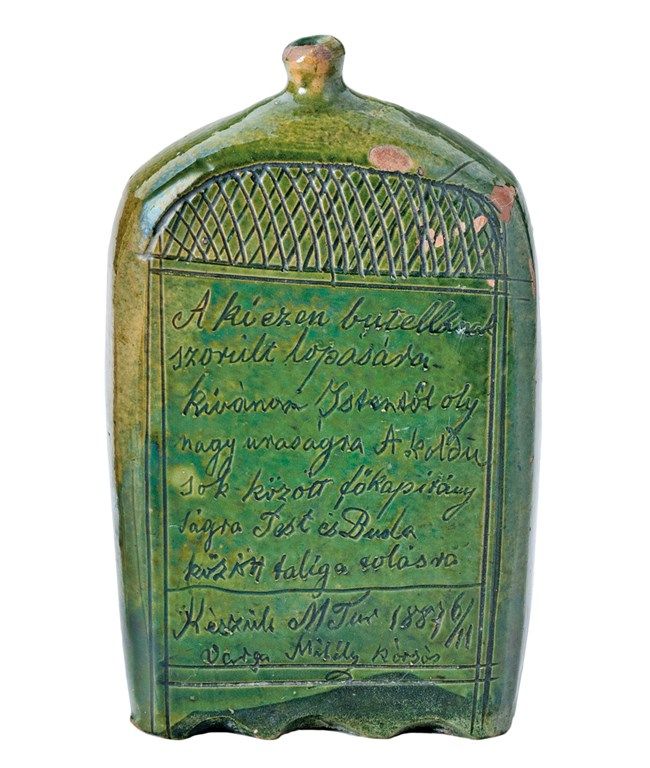 A ki ezen butellának
szorúlt lopására
kívánom Istentől oly
nagy uraságra A koldu
sok között főkapitány
ságra Pest és Buda
között taliga tolásra
Készült M Tur 1887 6/11
Varga Mihály korsós